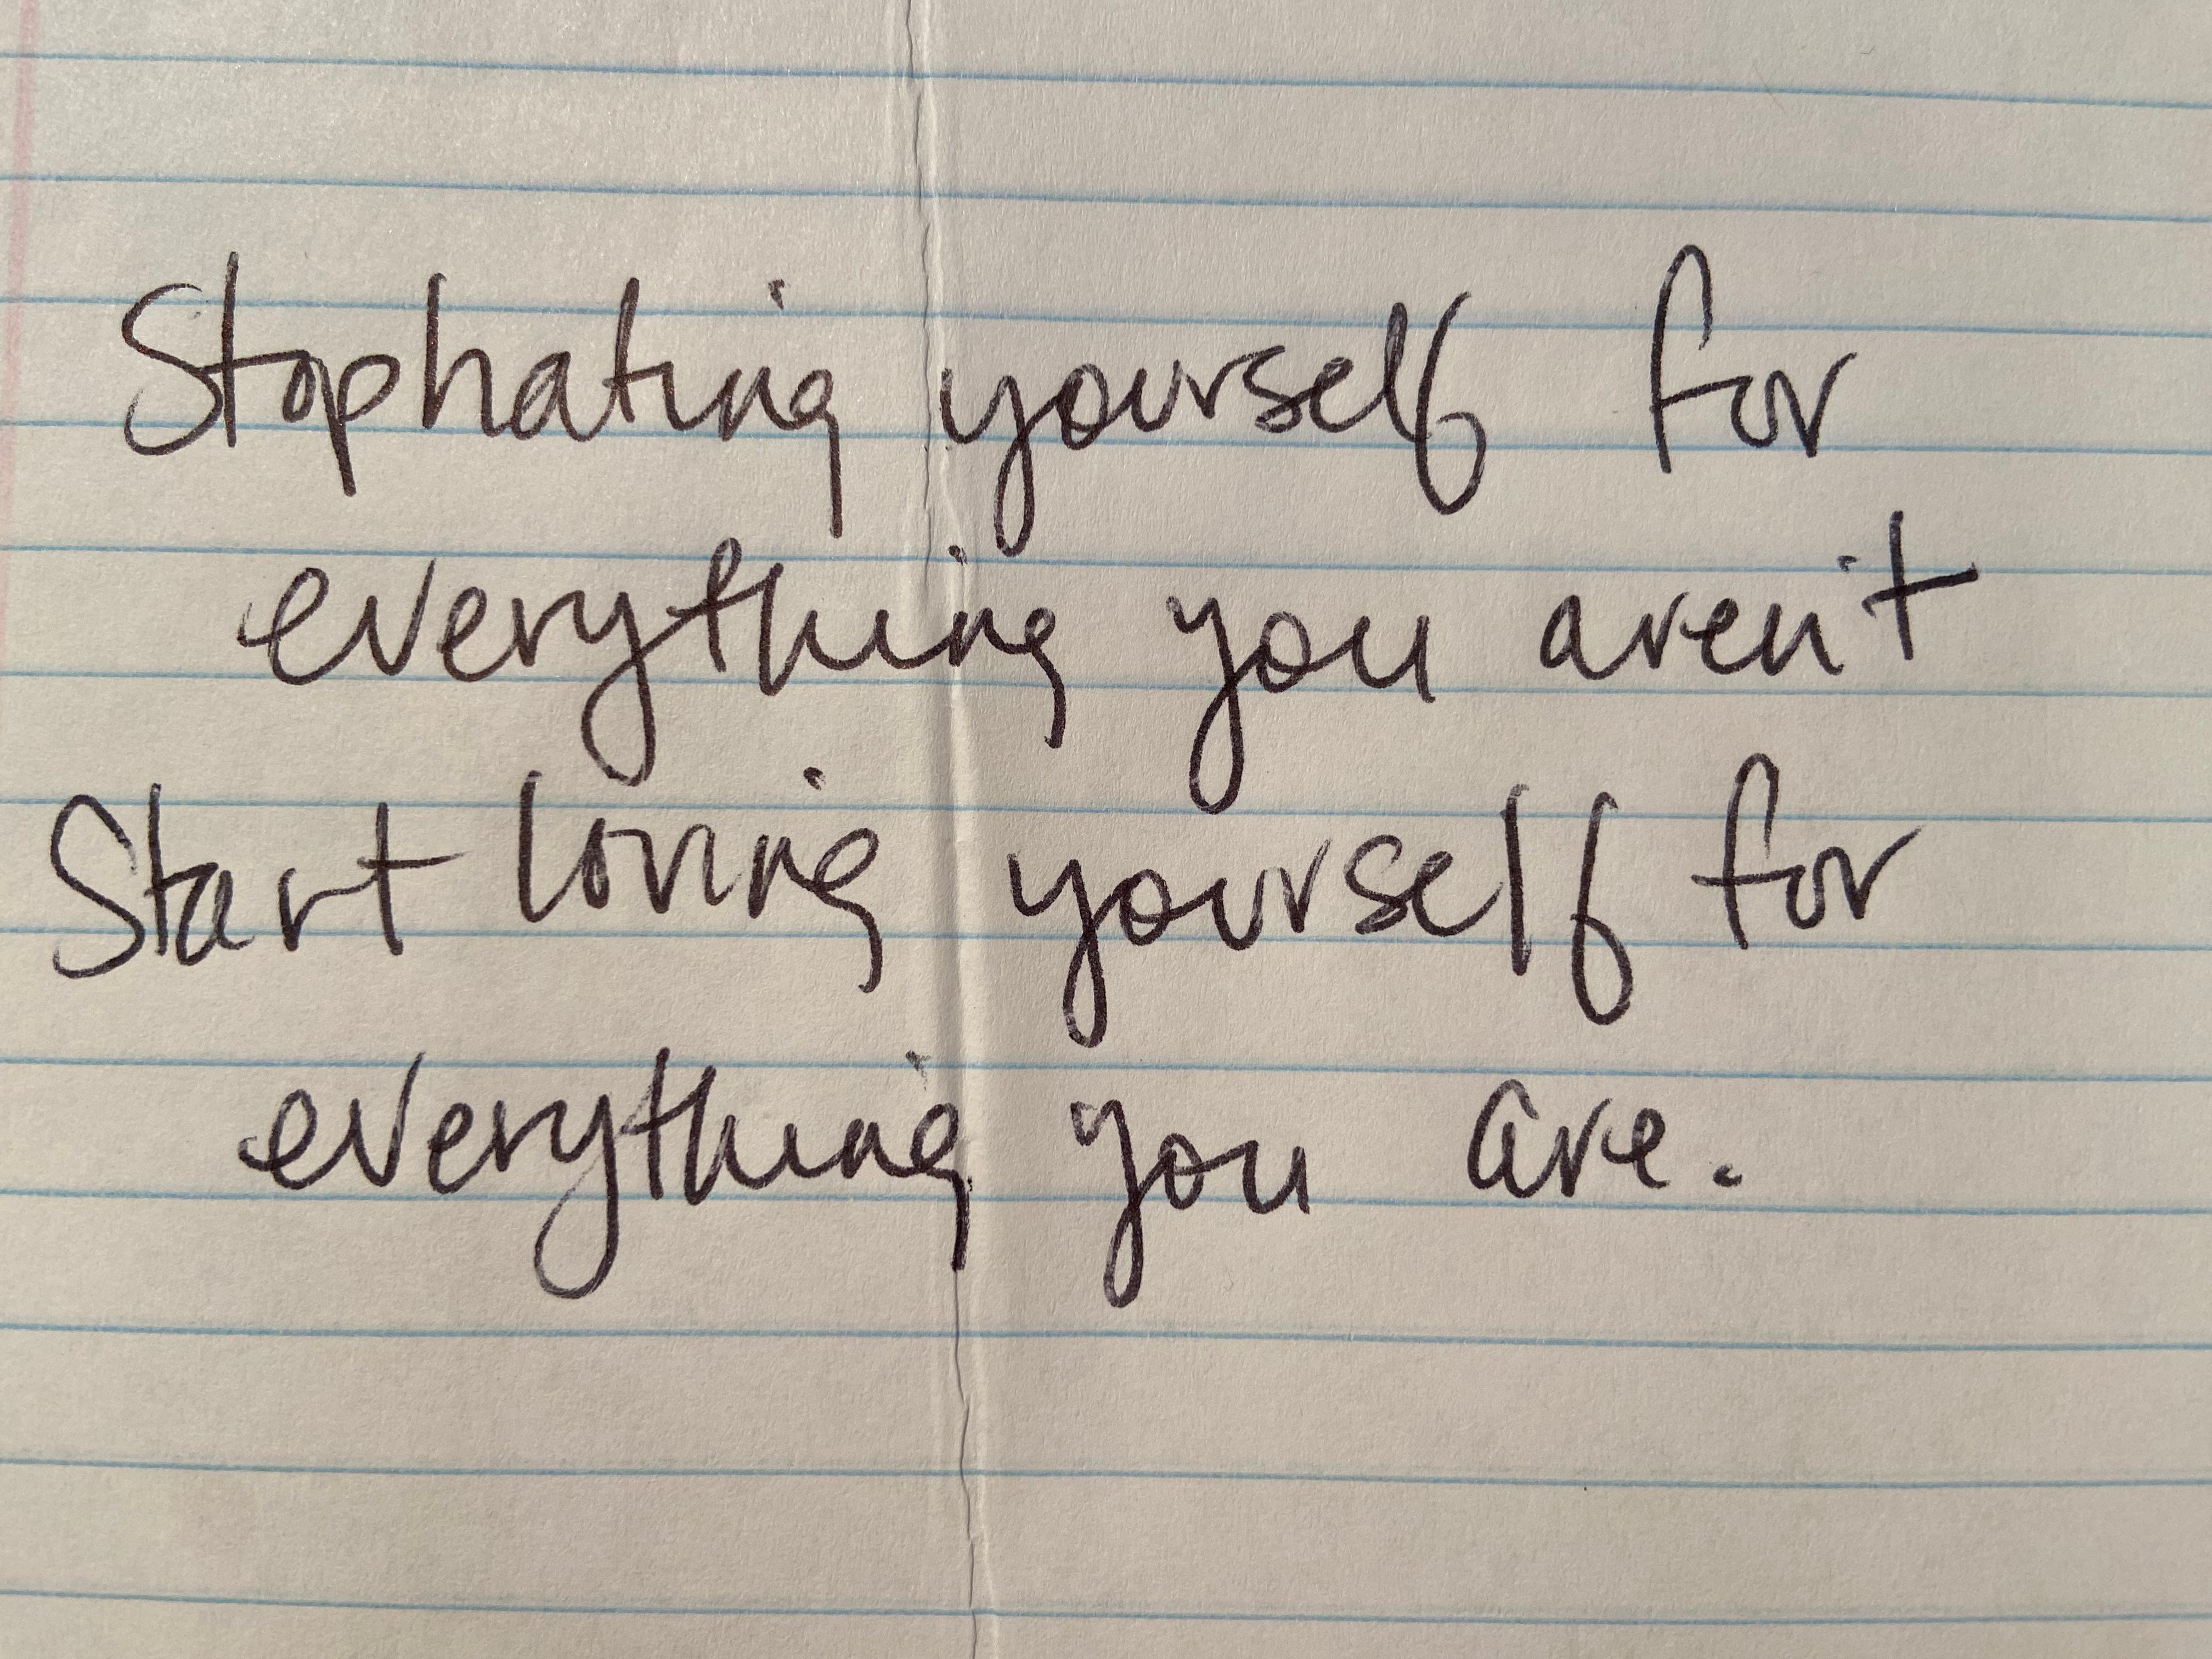 Stop hating yourself for
everything you aren't
Start loving yourself for
everything you are.